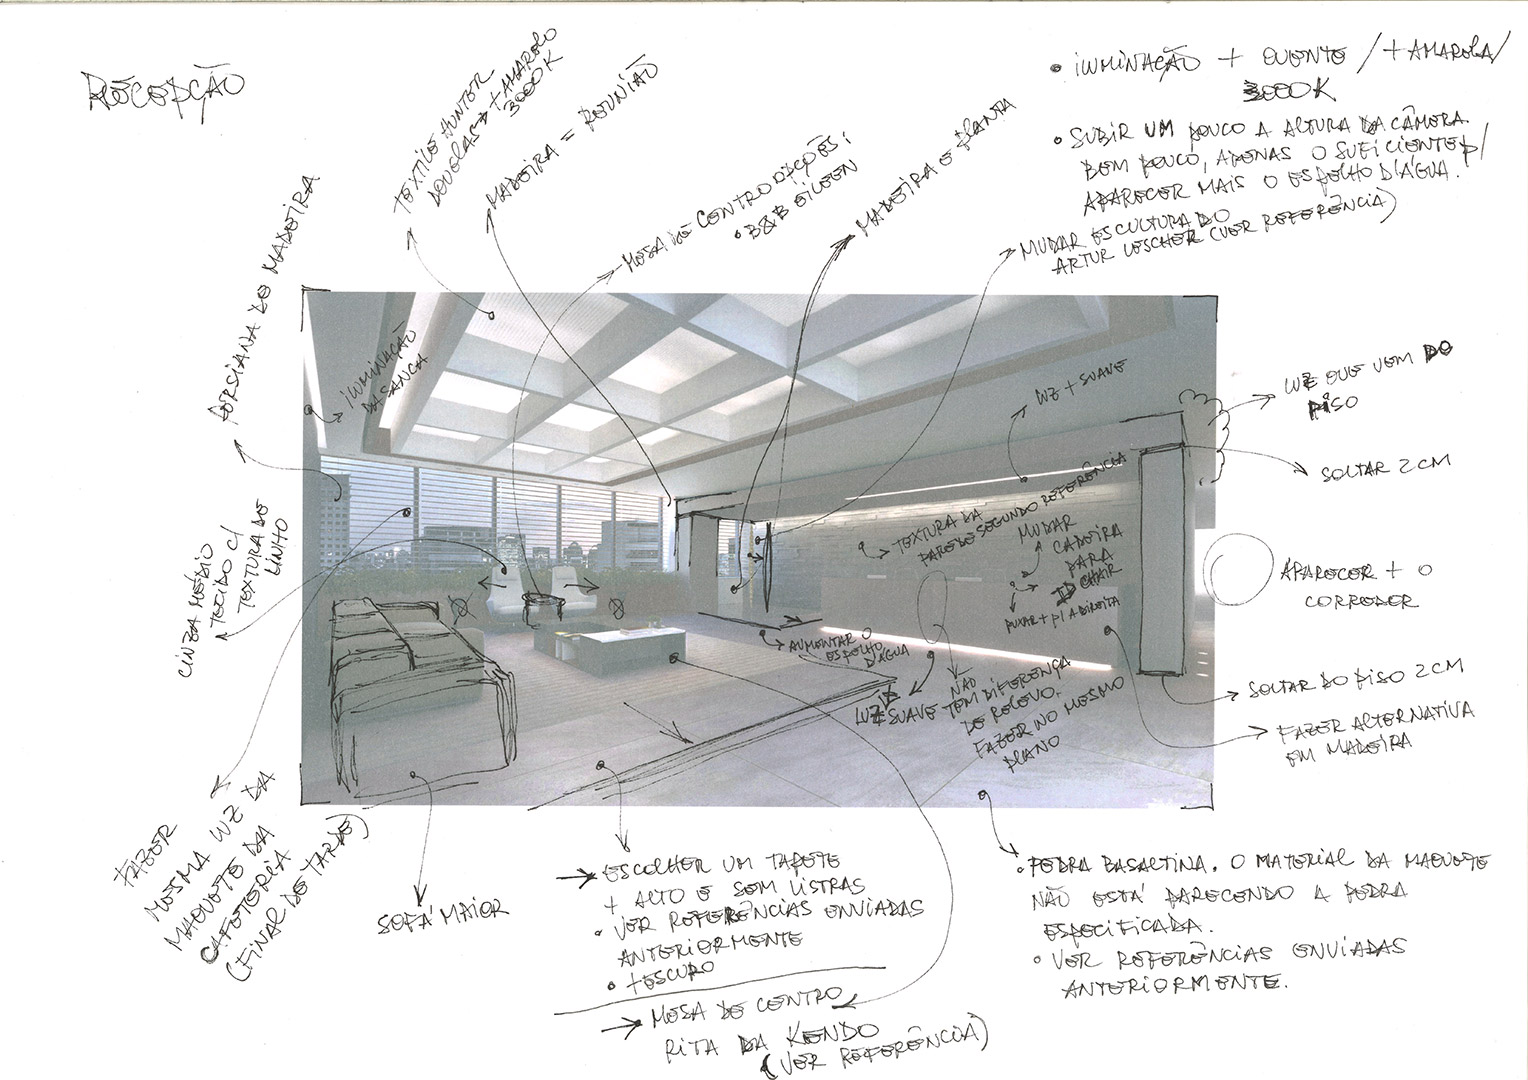 RECEPÇÃO
TEXTILE HUNTER
DOUGLAS → + AMARELO
3000K
MADEIRA = REUNIÃO
MESA DE CENTRO OPÇÕES:
• B&B EILEEN
MADEIRA E PLANTA
• ILUMINAÇÃO + QUENTE / + AMARELA /
3000K
• SUBIR UM POUCO A ALTURA DA CÂMERA.
BEM POUCO, APENAS O SUFICIENTE P/
APARECER MAIS O ESPELHO D'ÁGUA.
MUDAR ESCULTURA DO
ARTUR LESCHER (VER REFERÊNCIA)
PERSIANA DE MADEIRA
ILUMINAÇÃO
DA SANCA
LUZ + SUAVE
LUZ QUE VEM DO
PISO
SOLTAR 2 CM
TEXTURA DA
PAREDE SEGUNDO REFERÊNCIA
MUDAR
CADEIRA
PARA
CHAIR
PUXAR + P/ A DIREITA
APARECER + O
CORREDOR
CINZA MÉDIO
TECIDO C/
TEXTURA DE
LINHO
AUMENTAR O
ESPELHO
D'ÁGUA
LUZ SUAVE
NÃO
TEM DIFERENÇA
DE RELEVO.
FAZER NO MESMO
PLANO
SOLTAR DO PISO 2 CM
FAZER ALTERNATIVA
EM MADEIRA
FAZER
MESMA LUZ DA
MAQUETE DA
CAFETERIA
(FINAL DE TARDE)
SOFÁ MAIOR
→ ESCOLHER UM TAPETE
+ ALTO E SEM LISTRAS
• VER REFERÊNCIAS ENVIADAS
ANTERIORMENTE
• + ESCURO
→ MESA DE CENTRO
RITA DA KENDO
(VER REFERÊNCIA)
• PEDRA BASALTINA. O MATERIAL DA MAQUETE
NÃO ESTÁ PARECENDO A PEDRA
ESPECIFICADA.
• VER REFERÊNCIAS ENVIADAS
ANTERIORMENTE.